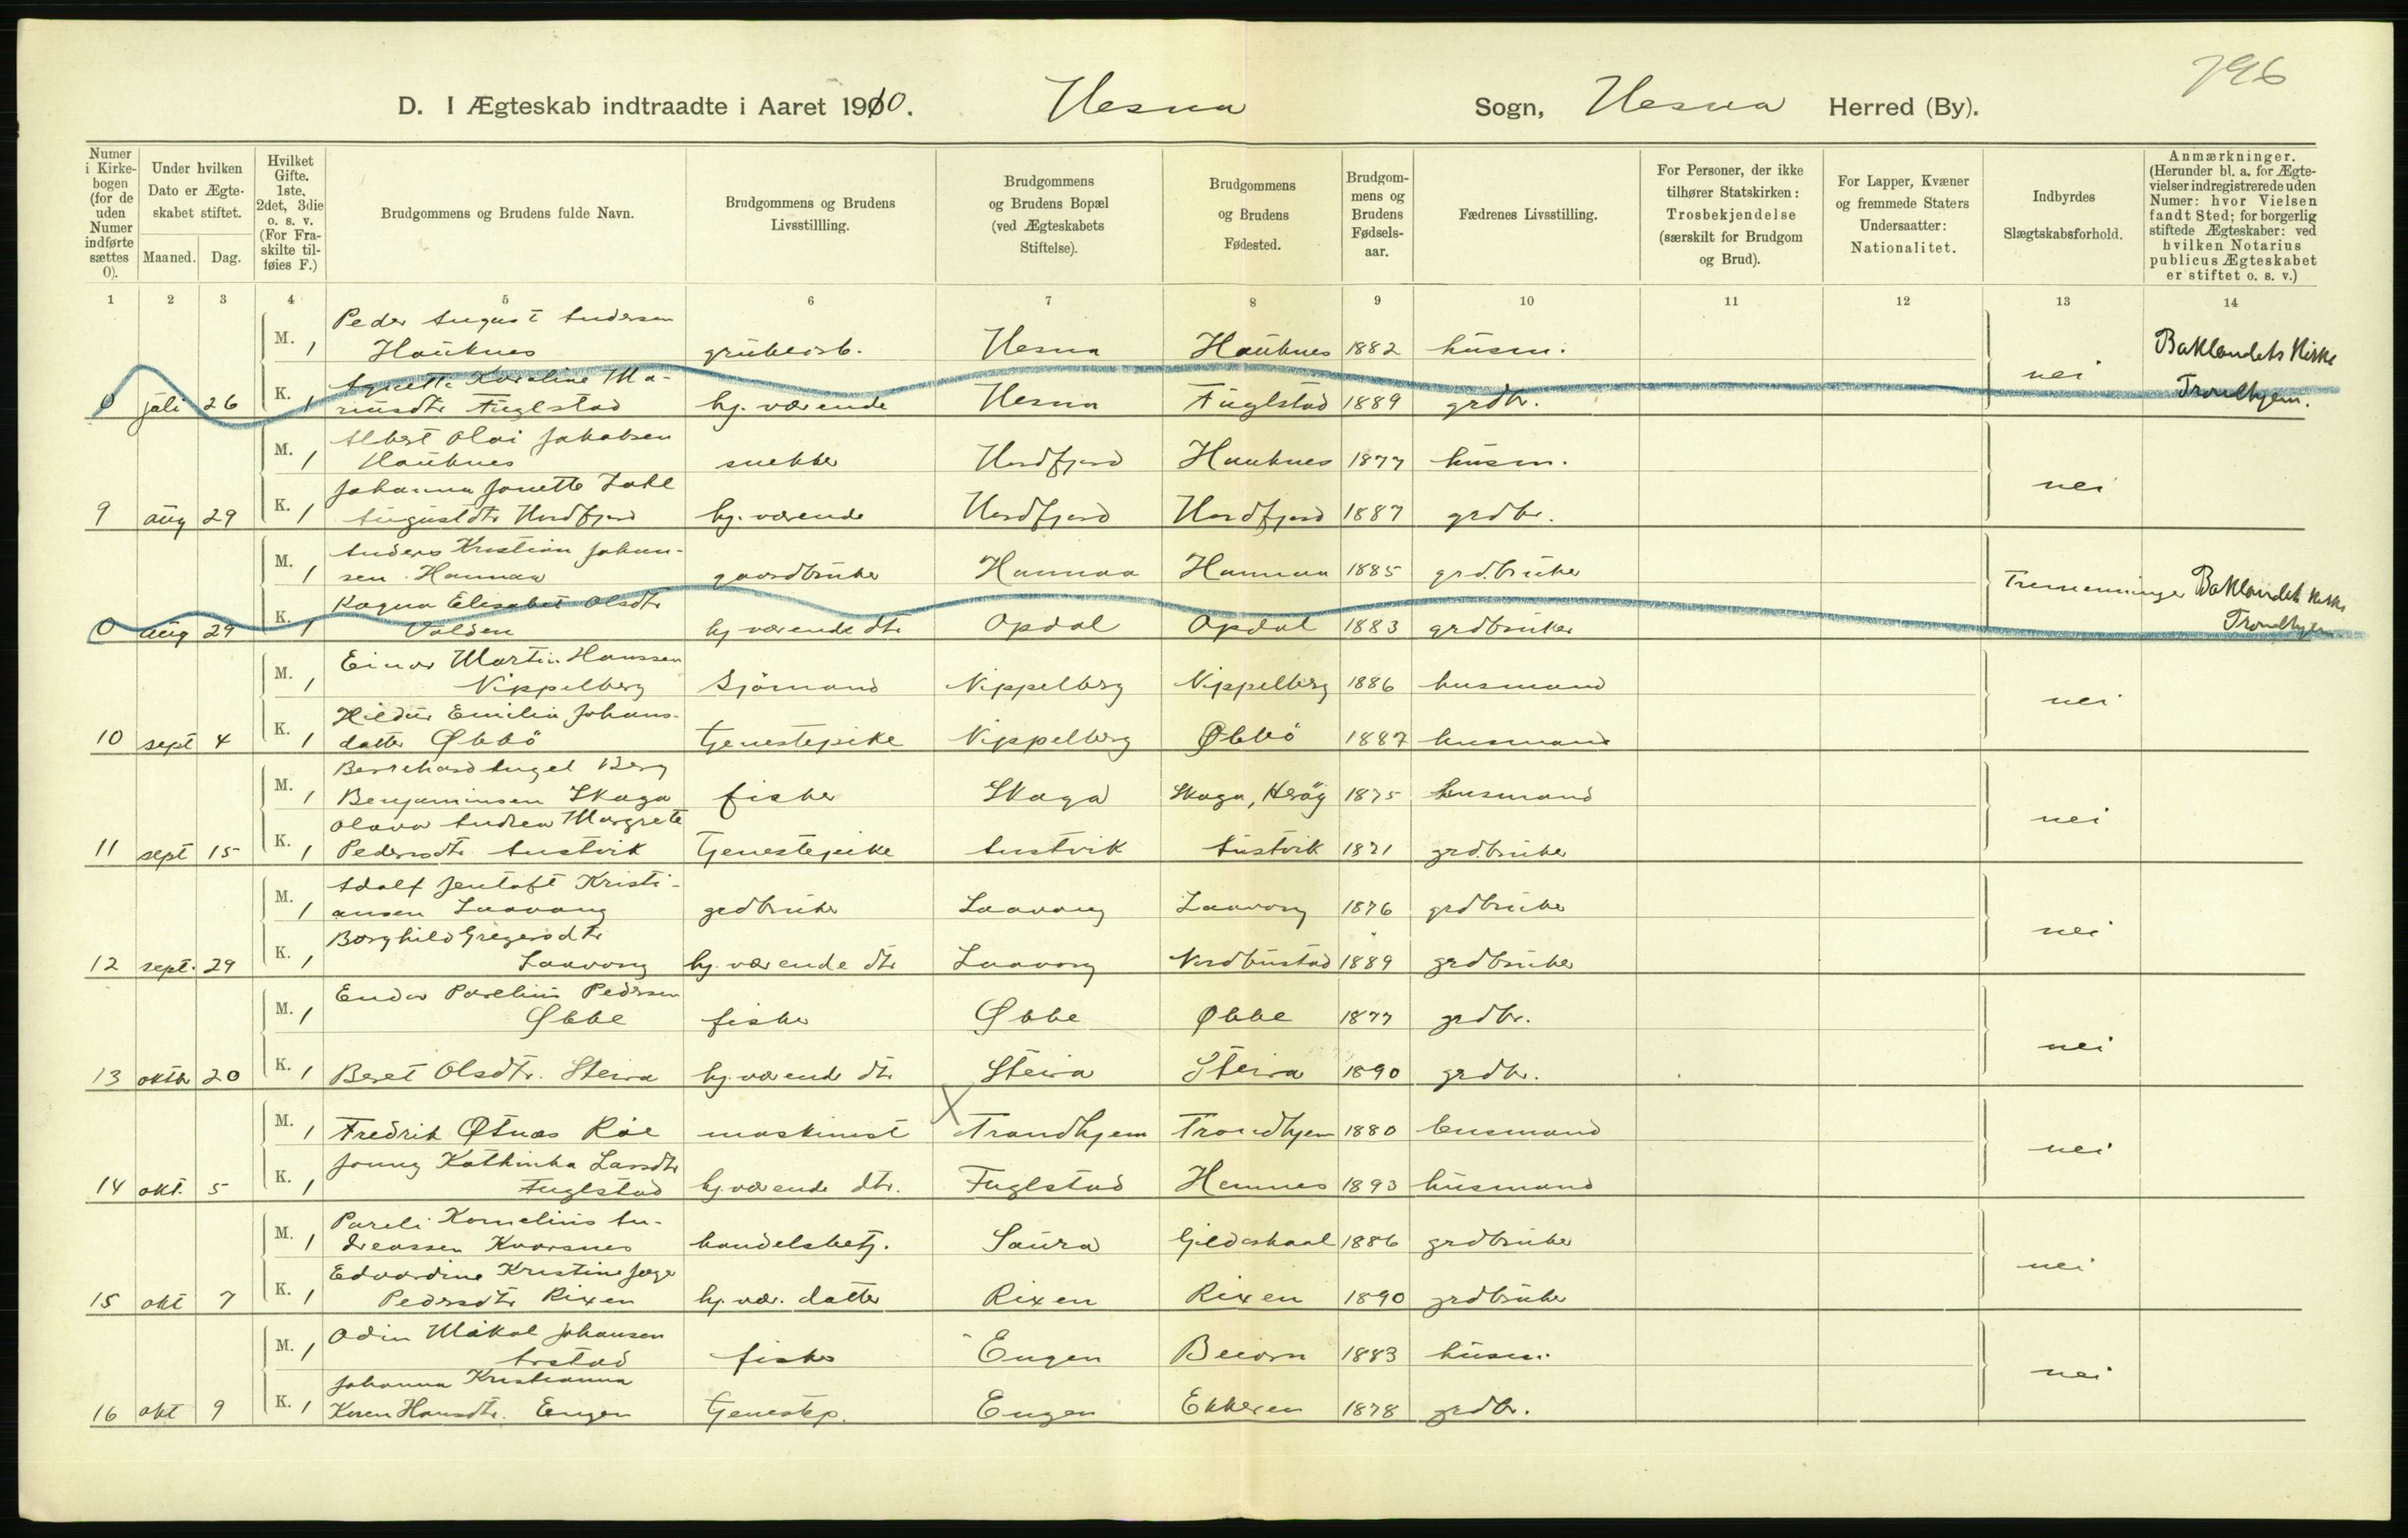 796
D. I Ægteskab indtraadte i Aaret 1910. Nesna Sogn, Nesna Herred (By).
Numer i Kirkebogen (for de uden Numer indførte sættes 0).
Under hvilken Dato er Ægteskabet stiftet.
Maaned. Dag.
Hvilket Gifte. 1ste, 2det, 3die o. s. v. (For Fraskilte tilføies F.)
Brudgommens og Brudens fulde Navn.
Brudgommens og Brudens Livsstillling.
Brudgommens og Brudens Bopæl (ved Ægteskabets Stiftelse).
Brudgommens og Brudens Fødested.
Brudgommens og Brudens Fødselsaar.
Fædrenes Livsstilling.
For Personer, der ikke tilhører Statskirken: Trosbekjendelse (særskilt for Brudgom og Brud).
For Lapper, Kvæner og fremmede Staters Undersaatter: Nationalitet.
Indbyrdes Slægtskabsforhold.
Anmærkninger. (Herunder bl. a. for Ægtevielser indregistrerede uden Numer: hvor Vielsen fandt Sted; for borgerlig stiftede Ægteskaber: ved hvilken Notarius publicus Ægteskabet er stiftet o. s. v.)
1 2 3 4 5 6 7 8 9 10 11 12 13 14
Peder August Andersen
M. 1 Hauknes grubearb. Nesna Hauknes 1882 husm. Baklandets Kirke
Agnette Karoline Ma- nei
0 juli 26 K. 1 riusdtr Fuglstad hj. værende Nesna Fuglstad 1889 grdbr. Trondhjem.
Albert Olai Jakobsen
M. 1 Hauknes snekker Nordfjord Hauknes 1877 husm.
Johanna Jonette nei
9 aug 29 K. 1 Augustdtr Nordfjord hj. værende Nordfjord Nordfjord 1887 grdbr.
Anders Kristian Johan-
M. 1 sen Hamnaa gaardbruker Hamnaa Hamnaa 1885 grdbruker Tremenninger Baklandets Kirke
Ragna Elisabet Olsdtr
0 aug 29 K. 1 Valden hj værende dtr Opdal Opdal 1883 grdbruker Trondhjem
Einar Martin Hanssen
M. 1 Nippelberg Sjömand Nippelberg Nippelberg 1886 husmand
Hildur Emilia Johans- nei
10 sept 4 K. 1 datter Økkö Tjenestepike Nippelberg Økkö 1887 husmand
Bernhard Angel Berg
M. 1 Benjaminsen Skaga fisker Skaga Skaga, Heröy 1875 husmand
Olava Andrea Margrete nei
11 sept 15 K. 1 Pedersdtr Austvik Tjenestepike Austvik Austvik 1871 grdbruker
Adolf Jentoft Kristi-
M. 1 ansen Laavong grdbruker Laavong Laavong 1876 grdbruker
Borghild Gregersdtr nei
12 sept. 29 K. 1 Laavong hj. værende dtr Laavong Nordbustad 1889 grdbruker
Parelius Pedersen
M. 1 Økke fisker Økke Økke 1877 grdbr.
nei
13 oktbr 20 K. 1 Beret Olsdtr. Steira hj. værende dtr Steira Steira 1890 grdbr.
M. 1 Fredrik Øtnæs Röe maskinist Trondhjem Trondhjem 1880 husmand
Jonny Kathinka Larsdtr nei
14 okt. 5 K. 1 Fuglstad hj. værende dtr. Fuglstad Hemnes 1893 husmand
Pareli Kornelius An-
M. 1 dreassen Kvarsnes handelsbetj. Saura Gildeskaal 1886 grdbruker
Edvardine Kristine nei
15 okt 7 K. 1 Pedersdtr Rixen hj. vær. datter Rixen Rixen 1890 grdbruker
Odin Mikal Johansen
M. 1 Arstad fisker Engen Beiarn 1883 husm.
Johanna Kristianna nei
16 okt 9 K. 1 Karen Hansdtr. Engen Tjenestep. Engen Ekkeren 1878 grdbr.